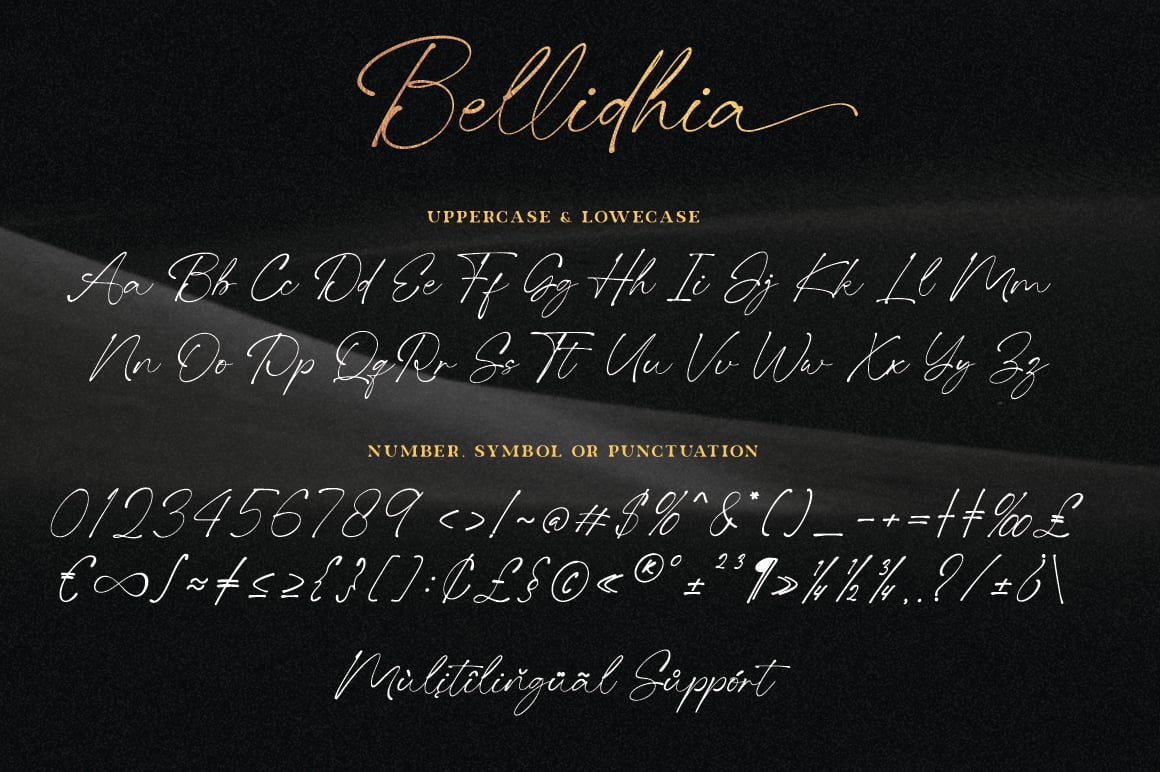 Bellidhia
UPPERCASE & LOWECASE
Aa Bb Cc Dd Ee Ff Gg Hh Ii Jj Kk Ll Mm
Nn Oo Pp Qq Rr Ss Tt Uu Vv Ww Xx Yy Zz
NUMBER. SYMBOL OR PUNCTUATION
0123456789 <>!~@#$%^&*()_-+=†‡‰£
€∞∫≈≠≤≥{}[]:₵£§©«®°±²³¶»¼½¾,.?/±¿\
Mùlįtîliňgüãl Sůppórt